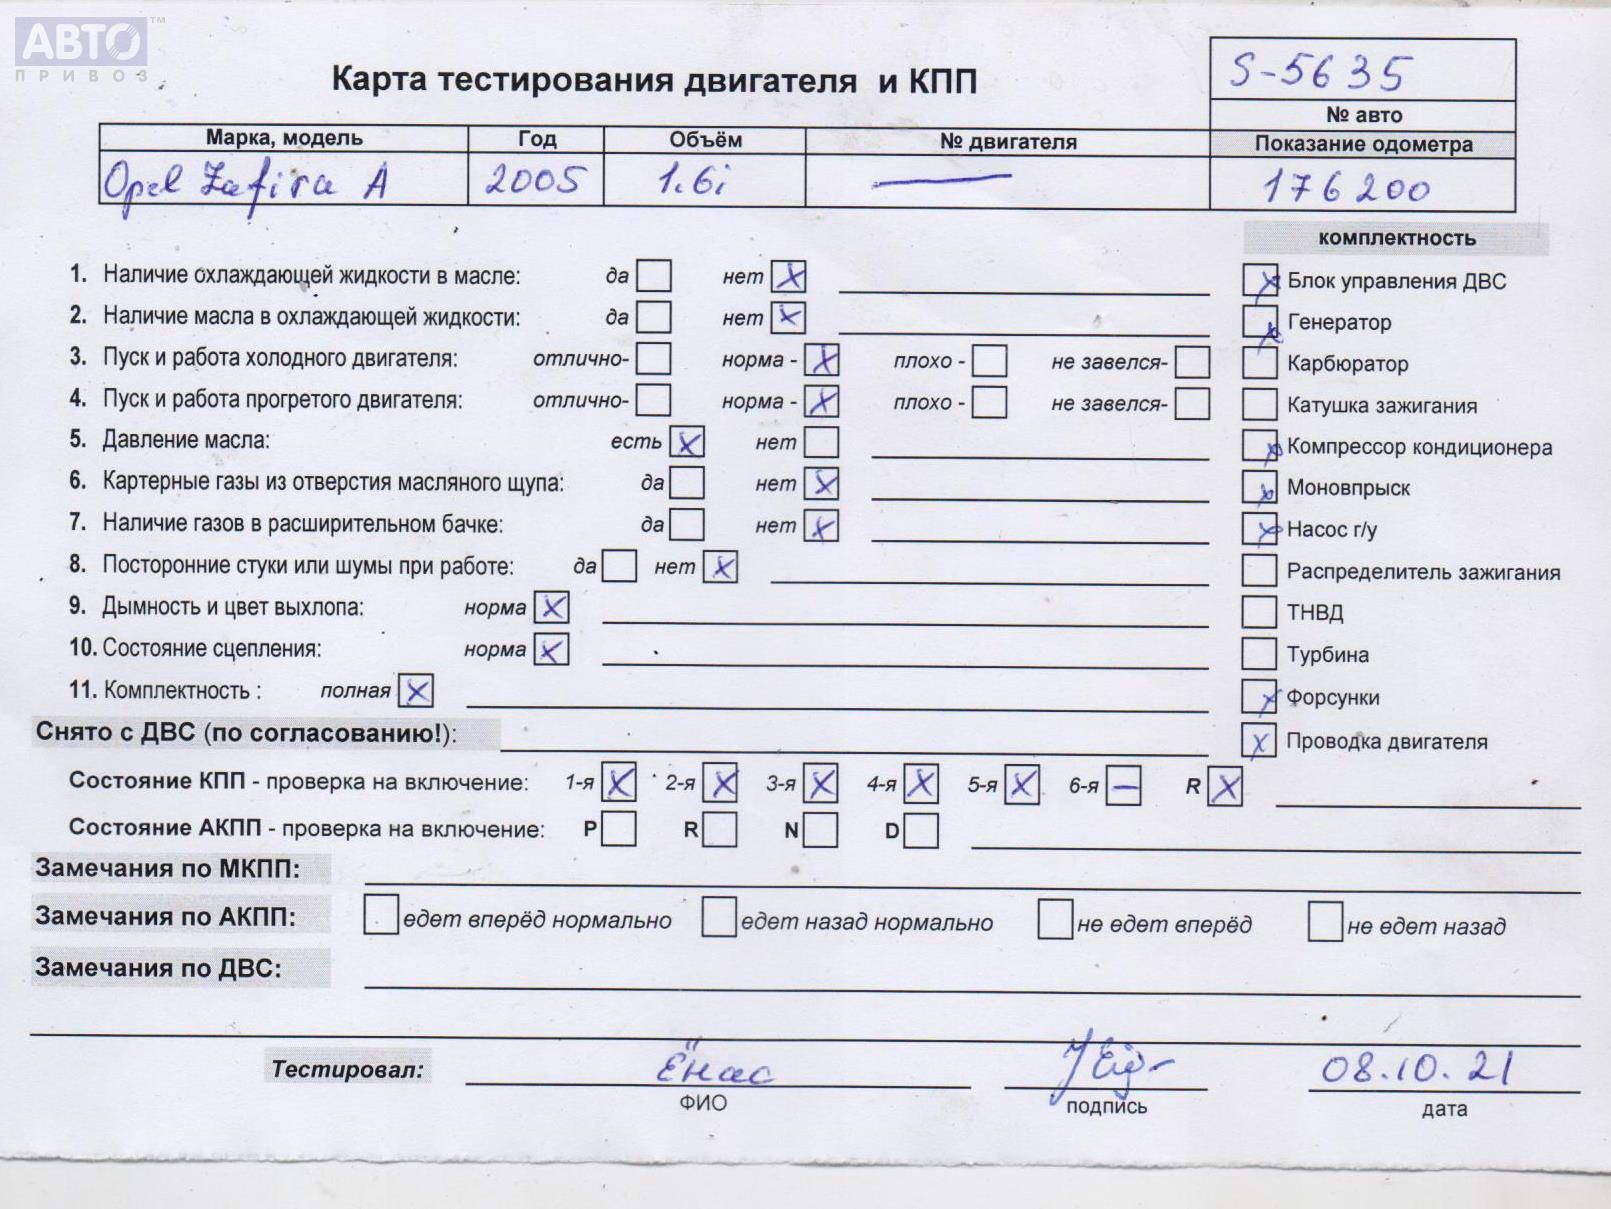 АВТО™
ПРИВОЗ
S-5635
Карта тестирования двигателя и КПП
№ авто
Марка, модель Год Объём № двигателя Показание одометра
Opel Zafira A 2005 1.6i — 176200
комплектность
1. Наличие охлаждающей жидкости в масле: да ☐ нет ☒ Блок управления ДВС ☒
2. Наличие масла в охлаждающей жидкости: да ☐ нет ☒ Генератор ☒
3. Пуск и работа холодного двигателя: отлично- ☐ норма - ☒ плохо - ☐ не завелся- ☐ ☐ Карбюратор
4. Пуск и работа прогретого двигателя: отлично- ☐ норма - ☒ плохо - ☐ не завелся- ☐ ☐ Катушка зажигания
5. Давление масла: есть ☒ нет ☐ ☒ Компрессор кондиционера
6. Картерные газы из отверстия масляного щупа: да ☐ нет ☒ ☒ Моновпрыск
7. Наличие газов в расширительном бачке: да ☐ нет ☒ ☒ Насос г/у
8. Посторонние стуки или шумы при работе: да ☐ нет ☒ ☐ Распределитель зажигания
9. Дымность и цвет выхлопа: норма ☒ ☐ ТНВД
10. Состояние сцепления: норма ☒ ☐ Турбина
11. Комплектность : полная ☒ ☒ Форсунки
Снято с ДВС (по согласованию!): ☒ Проводка двигателя
Состояние КПП - проверка на включение: 1-я ☒ 2-я ☒ 3-я ☒ 4-я ☒ 5-я ☒ 6-я — R ☒
Состояние АКПП - проверка на включение: P ☐ R ☐ N ☐ D ☐
Замечания по МКПП:
Замечания по АКПП: ☐ едет вперёд нормально ☐ едет назад нормально ☐ не едет вперёд ☐ не едет назад
Замечания по ДВС:
Тестировал: Ёнас 08.10.21
ФИО подпись дата